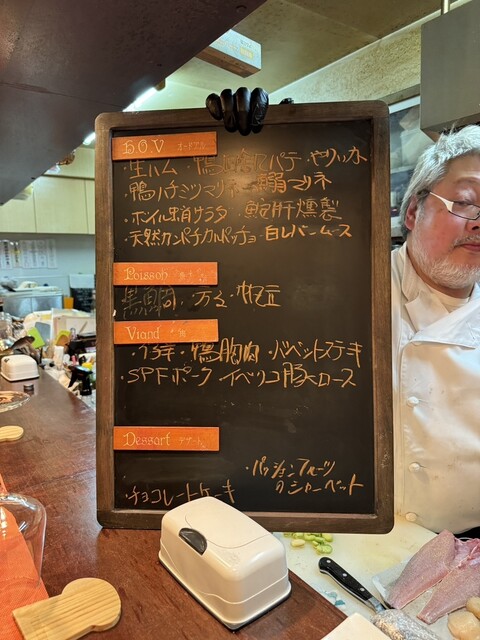 H.O.V オードブル
・生ハム ・鴨 パテ ・やりいか
・鴨ハチミツマリネ ・ マリネ
・ボイル サラダ ・鮑肝燻製
・天然カンパチカルパッチョ ・白レバームース
Poisson
・ ・帆立
Viand
・鴨胸肉 ・バベットステーキ
・SPFポーク イベリコ豚 ロース
Dessart デザート
・チョコレートケーキ
・パッションフルーツ
のシャーベット